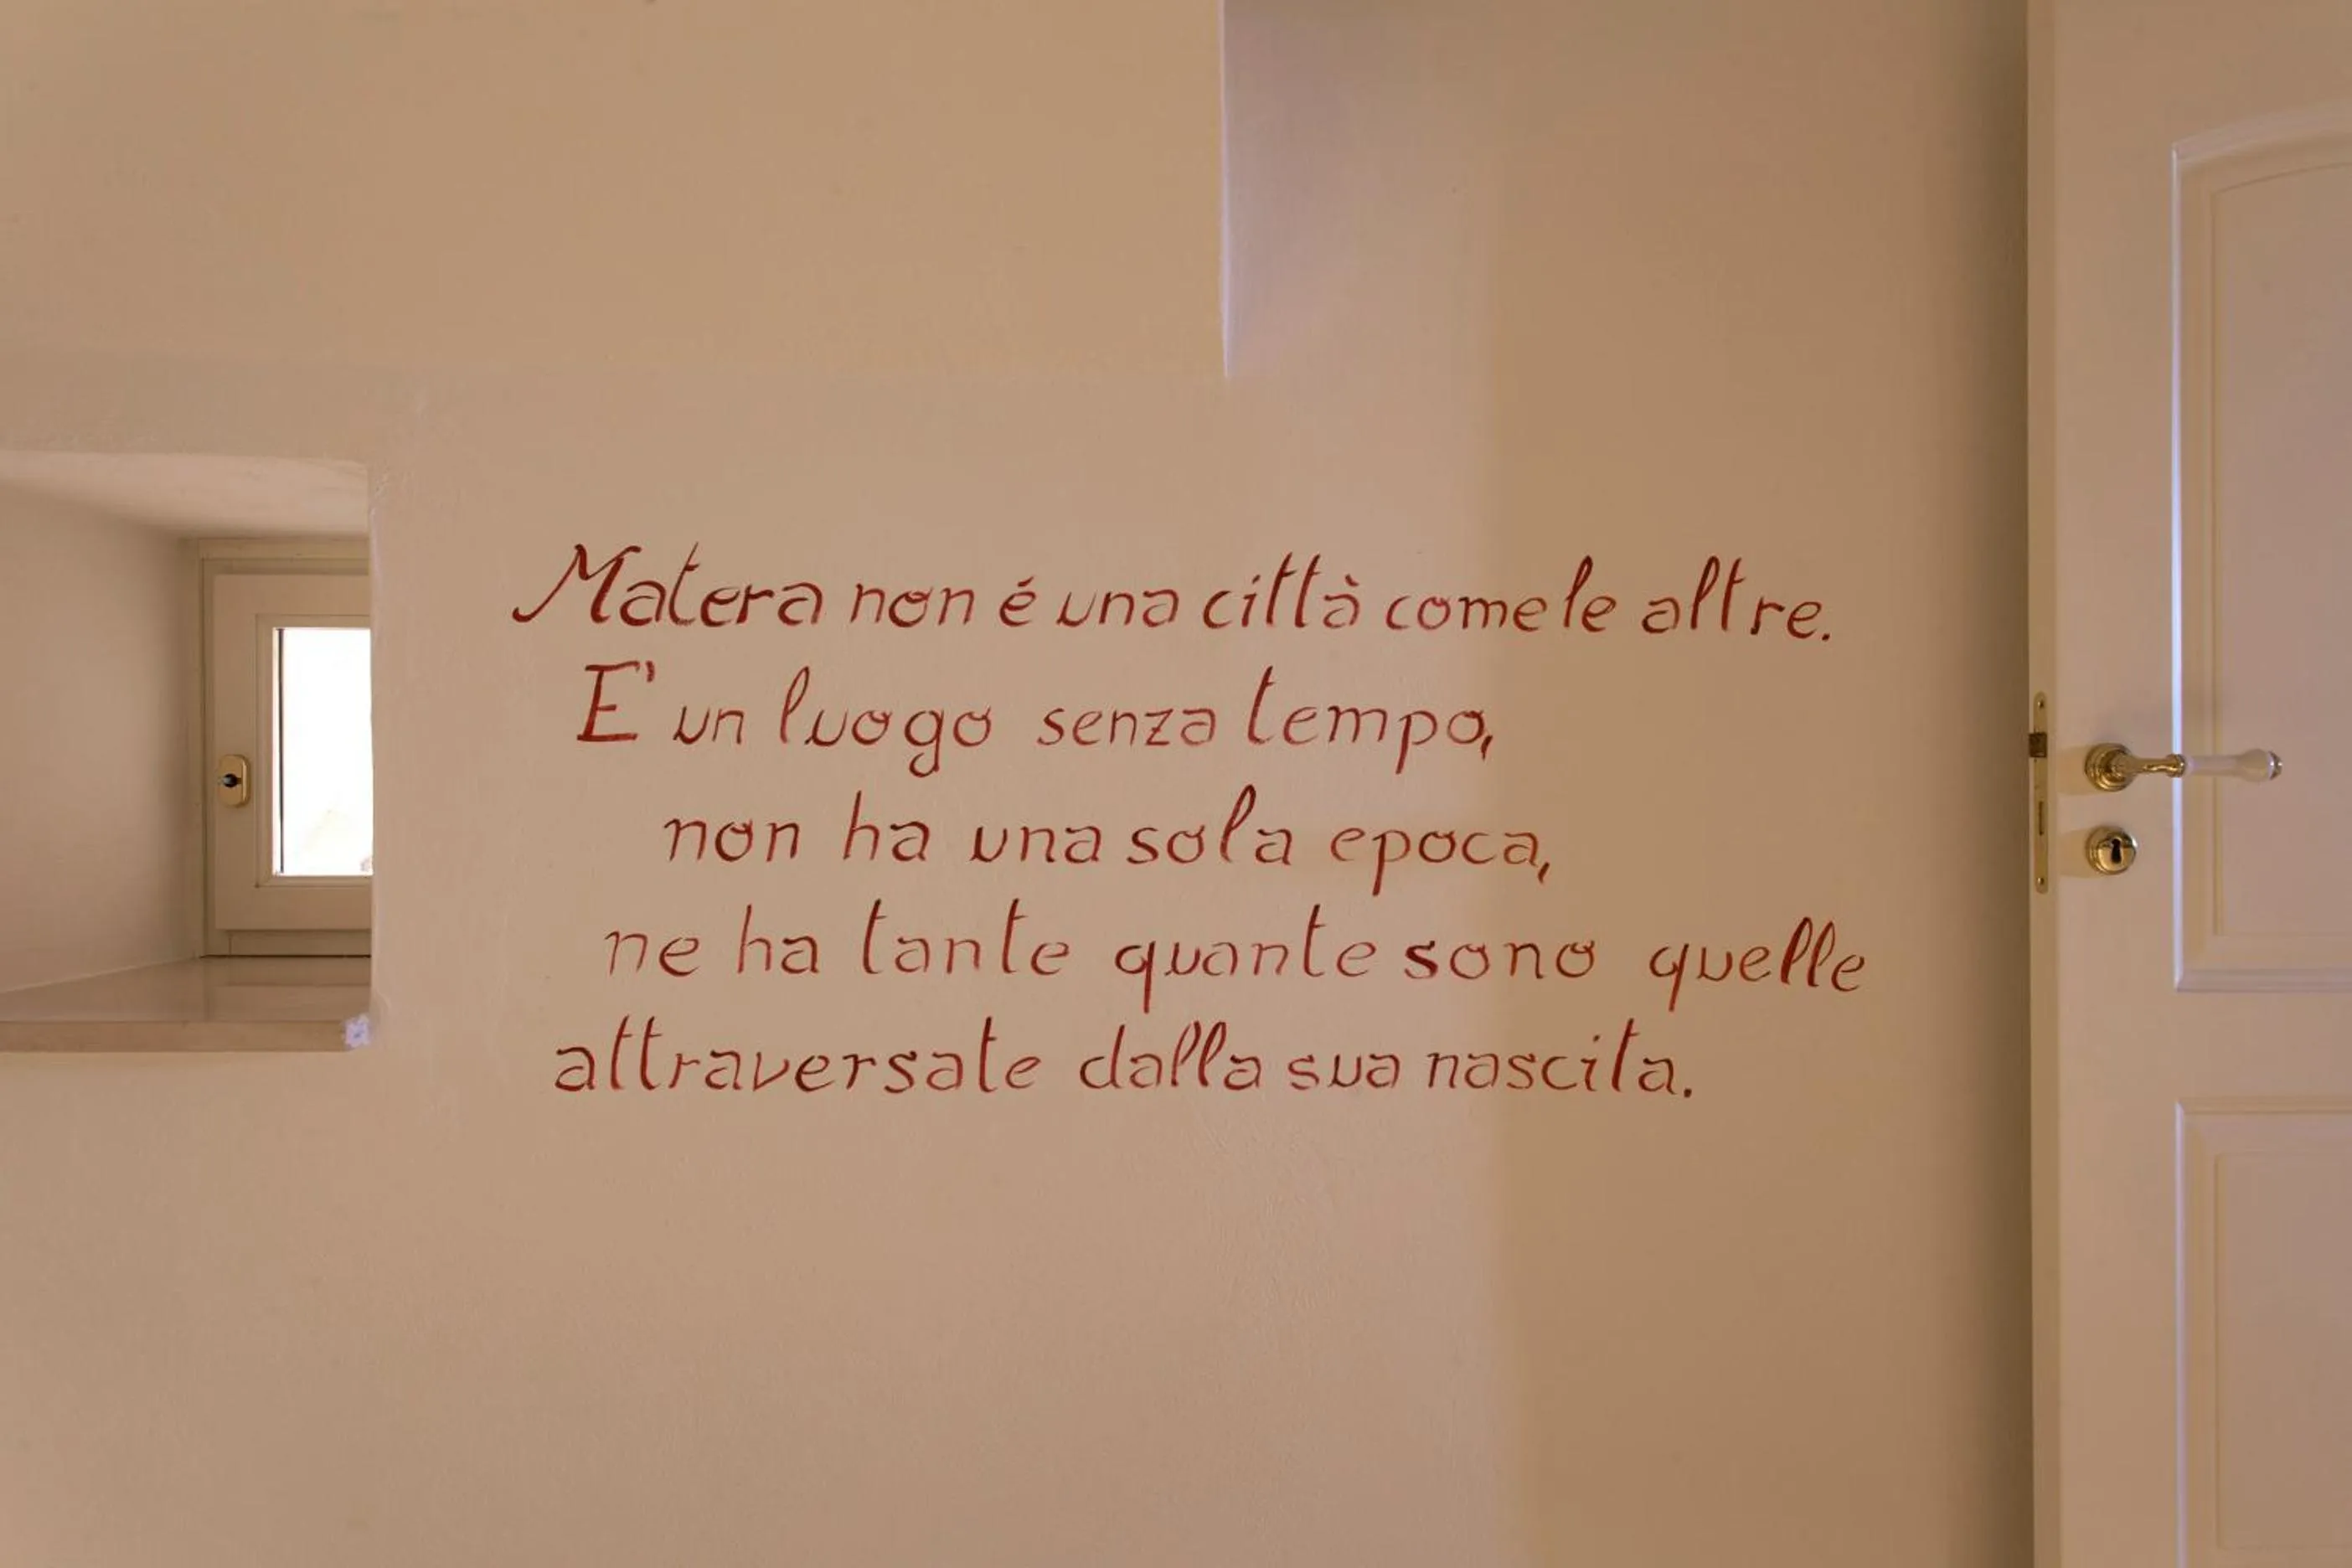 Matera non é una città come le altre.
E' un luogo senza tempo,
non ha una sola epoca,
ne ha tante quante sono quelle
attraversate dalla sua nascita.